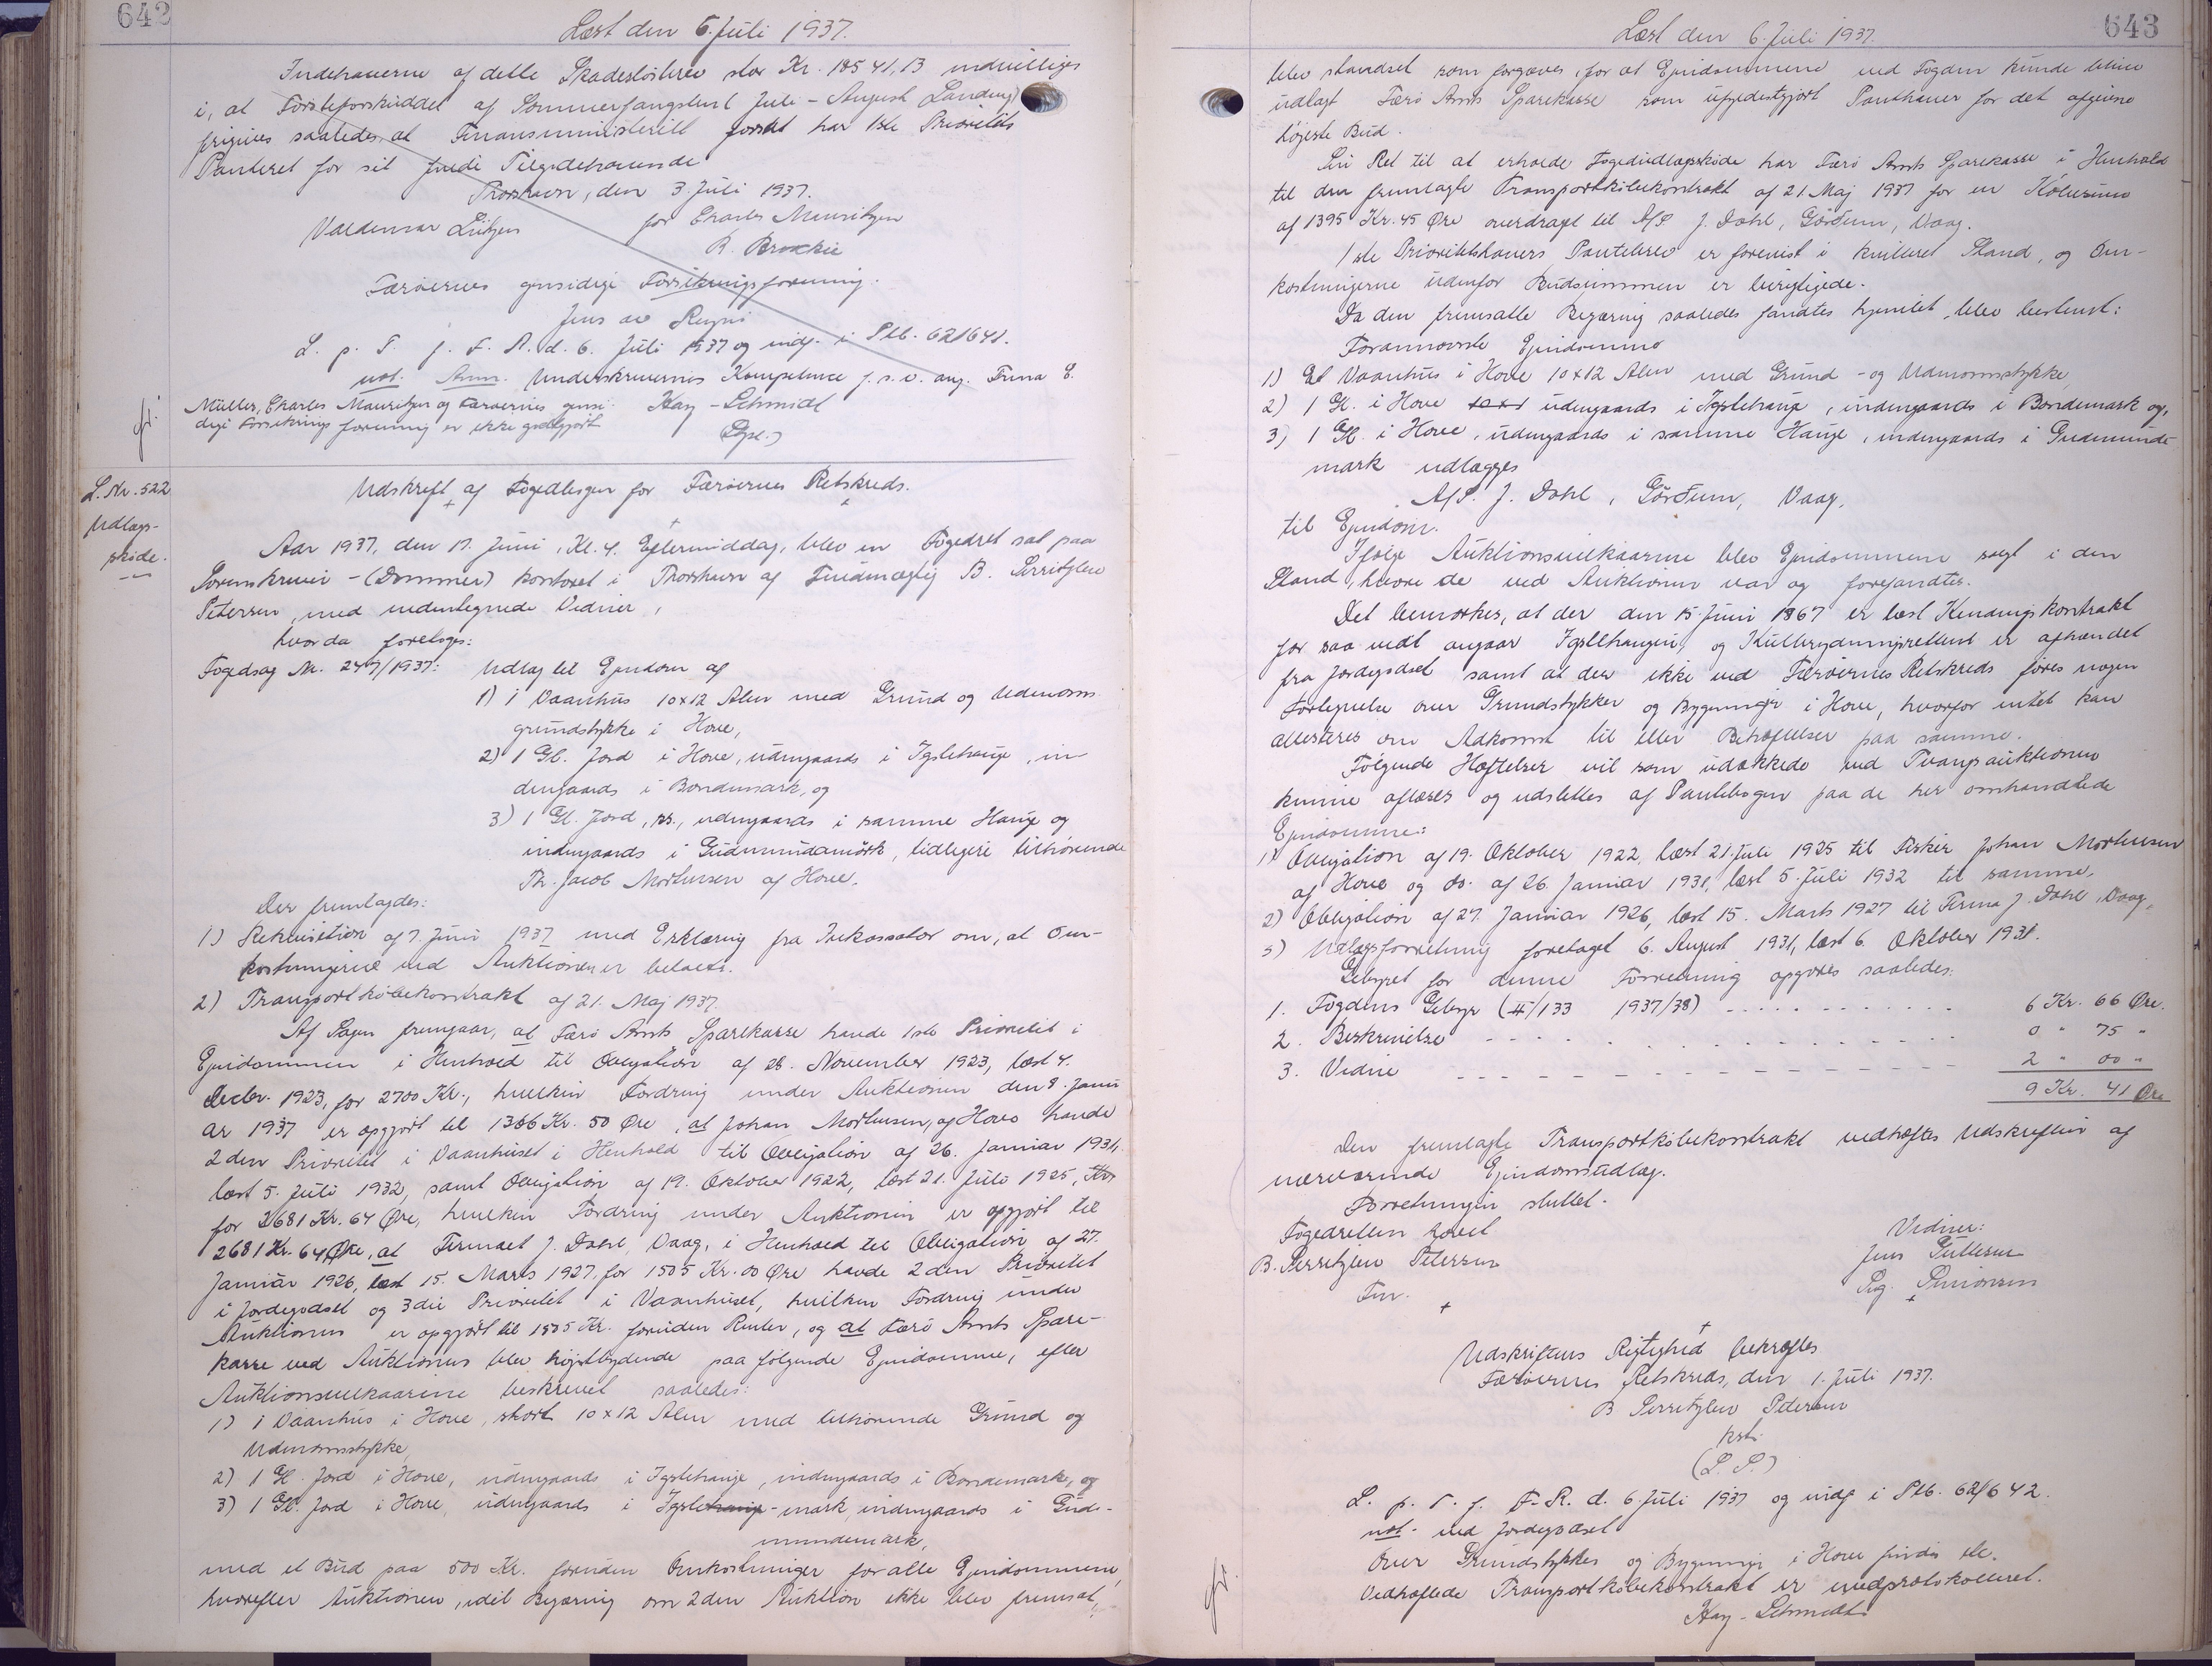 642
Læst den 6. Juli 1937.
Indehaverne af dette Skadesløsbrev stor Kr. 18541,13 indvilliges
i, at Førsteforskuddet af Sommerfangsten Juli - August Landing
frigives saaledes at Finansministeriet forud har 1ste Prioritets
Panteret for sit fulde Tilgodehavende
Thorshavn, den 3. Juli 1937.
Valdemar Lützen for Charles Mauritzen
R. Brockie
Færøernes gensidige Forsikringsforening.
Jens av Reyni
L. p. T. f. F. R. d. 6. Juli 1937 og indf. i Ptb. 62/641.
not. Anm. Underskrivernes Kompetence f. s. v. ang. Firma E.
Müller, Charles Mauritzen og Færøernes gensi-
dige Forsikrings forening er ikke godtgjort
Kay-Schmidt
(Dspl.)
L. Nr. 522
Udlægs-
skøde.
Udskrift af Fogedbogen for Færøernes Retskreds.
Aar 1937, den 17. Juni, Kl. 4 Eftermiddag, blev en Fogedret sat paa
Sorenskriver-(Dommer) kontoret i Thorshavn af Fuldmægtig B. Sverri Tzlew
Petersen, med undertegnede Vidner,
hvorda foretoges:
Fogedsag Nr. 247/1937: Udlæg til Ejendom af
1) 1 Vaanhus 10x12 Alen med Grund og Udmarks
grundstykke i Hove,
2) 1 Gl. Jord i Hove, udengaards i Igslehauge, in
dengaards i Bøndemark, og
3) 1 Gl. Jord, ss., udengaards i samme Hauge og
indengaards i Gudmundamørk, tidligere tilhørende
Th. Jacob Mortensen af Hove.
Der fremlagdes:
1) Rekvisition af 7. Juni 1937 med Erklæring fra Inkassator om, at Om-
kostningerne ved Auktionen er betalt.
2) Transportkøbekontrakt af 21. Maj 1937.
Af Sagen fremgaar, at Færø Amts Sparekasse havde 1ste Prioritet i
Ejendommen i Henhold til Obligation af 28. November 1923, læst 4.
Decbr. 1923, for 2700 Kr., hvilken Fordring under Auktionen den 8. Janu
ar 1937 er opgjort til 1366 Kr. 50 Øre, at Johan Mortensen, af Hove havde
2den Prioritet i Vaanhuset i Henhold til Obligation af 26. Januar 1931,
læst 5. Juli 1932, samt Obligation af 19. Oktober 1922, læst 21. Juli 1925,
for 2681 Kr. 64 Øre, hvilken Fordring under Auktionen er opgjort til
2681 Kr. 64 Øre, at Firmaet J. Dahl, Vaag, i Henhold til Obligation af 27.
Januar 1926, læst 15. Marts 1927, for 1505 Kr. 00 Øre havde 2den Prioritet
i Jordegodset og 3die Prioritet i Vaanhuset, hvilken Fordring under
Auktionen er opgjort til 1505 Kr. foruden Renter, og at Færø Amts Spare-
kasse ved Auktionen blev højstbydende paa følgende Ejendomme, efter
Auktionsvilkaarene beskrevet saaledes:
1) 1 Vaanhus i Hove, stort 10x12 Alen med tilhørende Grund og
Udmarksstykke,
2) 1 Gl. Jord i Hove, udengaards i Igslehauge, indengaards i Bøndemark, og
3) 1 Gl. Jord i Hove, udengaards i Igslehauge-mark, indengaards i Gud-
mundemark,
med et Bud paa 500 Kr. foruden Omkostninger for alle Ejendommene,
hvorefter Auktionen, idet Begæring om 2den Auktion ikke blev fremsat,
643
Læst den 6. Juli 1937.
blev standset som forgæves, for at Ejendommene ved Fogden kunde blive
udlagt Færø Amts Sparekasse som ufyldestgjort Panthaver for det afgivne
højeste Bud.
Sin Ret til at erholde Fogedudlægsskøde har Færø Amts Sparekasse i Henhold
til den fremlagte Transportkøbekontrakt af 21. Maj 1937 for en Købesum
af 1395 Kr. 45 Øre overdraget til A/S. J. Dahl, Gørðum, Vaag.
1ste Prioritetshavers Pantebrev er forevist i kvitteret Stand, og Om-
kostningerne udenfor Budsummen er berigtigede.
Da den fremsatte Begæring saaledes fandtes hjemlet, blev bestemt:
Forannævnte Ejendomme
1) Et Vaanhus i Hove 10x12 Alen med Grund - og Udmarksstykke,
2) 1 Gl. i Hove 10x1 udengaards i Igslehauge, indengaards i Bøndemark og,
3) 1 Gl. i Hove, udengaards i samme Hauge, indengaards i Gudmunde-
mark udlægges
A/S. J. Dahl, Gørðum, Vaag,
til Ejendom.
Ifølge Auktionsvilkaarene blev Ejendommene solgt i den
Stand, hvori de ved Auktionen var og forefandtes.
Det bemærkes, at der den 15 Juni 1867 er læst Kendingskontrakt
for saa vidt angaar Igslehaugen, og Kulbrydningsretten er afhændet
fra Jordegodset samt at der ikke ved Færøernes Retskreds føres nogen
Fortegnelse over Grundstykker og Bygninger i Hove, hvorfor intet kan
attesteres om Adkomst til eller Behæftelser paa samme.
Følgende Hæftelser vil som udækkede ved Tvangsauktionen
kunne aflæses og udslettes af Pantebogen paa de her omhandlede
Ejendomme:
1) Obligation af 19. Oktober 1922, læst 21. Juli 1925 til Fisker Johan Mortensen
af Hove og do. af 26. Januar 1931, læst 5. Juli 1932 til samme,
2) Obligation af 27. Januar 1926, læst 15. Marts 1927 til Firma J. Dahl, Vaag,
3) Udlægsforretning foretaget 6. August 1931, læst 6. Oktober 1931.
Gebyret for denne Forretning opgøres saaledes:
1. Fogdens Gebyr (II/133 1937/38) 6 Kr. 66 Øre.
2. Beskrivelse 0 " 75 "
3. Vidne 2 " 00 "
9 Kr. 41 Øre
Den fremlagte Transportkøbekontrakt vedhæftes Udskriften af
nærværende Ejendomsudlæg.
Forretningen sluttet.
Fogedretten hævet
B. Sverri Tzlew Petersen
Fm.
Vidner:
Jens
Sig. Simonsen
Udskriftens Rigtighed bekræftes
Færøernes Retskreds, den 1. Juli 1937.
B Sverri Tzlew Petersen
kst.
(L. S.)
L. p. T. f. F. R. d. 6. Juli 1937 og indf i Ptb. 62/642.
not. ved Jordegodset
Over Grundstykker og Bygninger i Hove findes
Vedhæftede Transportkøbekontrakt er medprotokolleret.
Kay-Schmidt